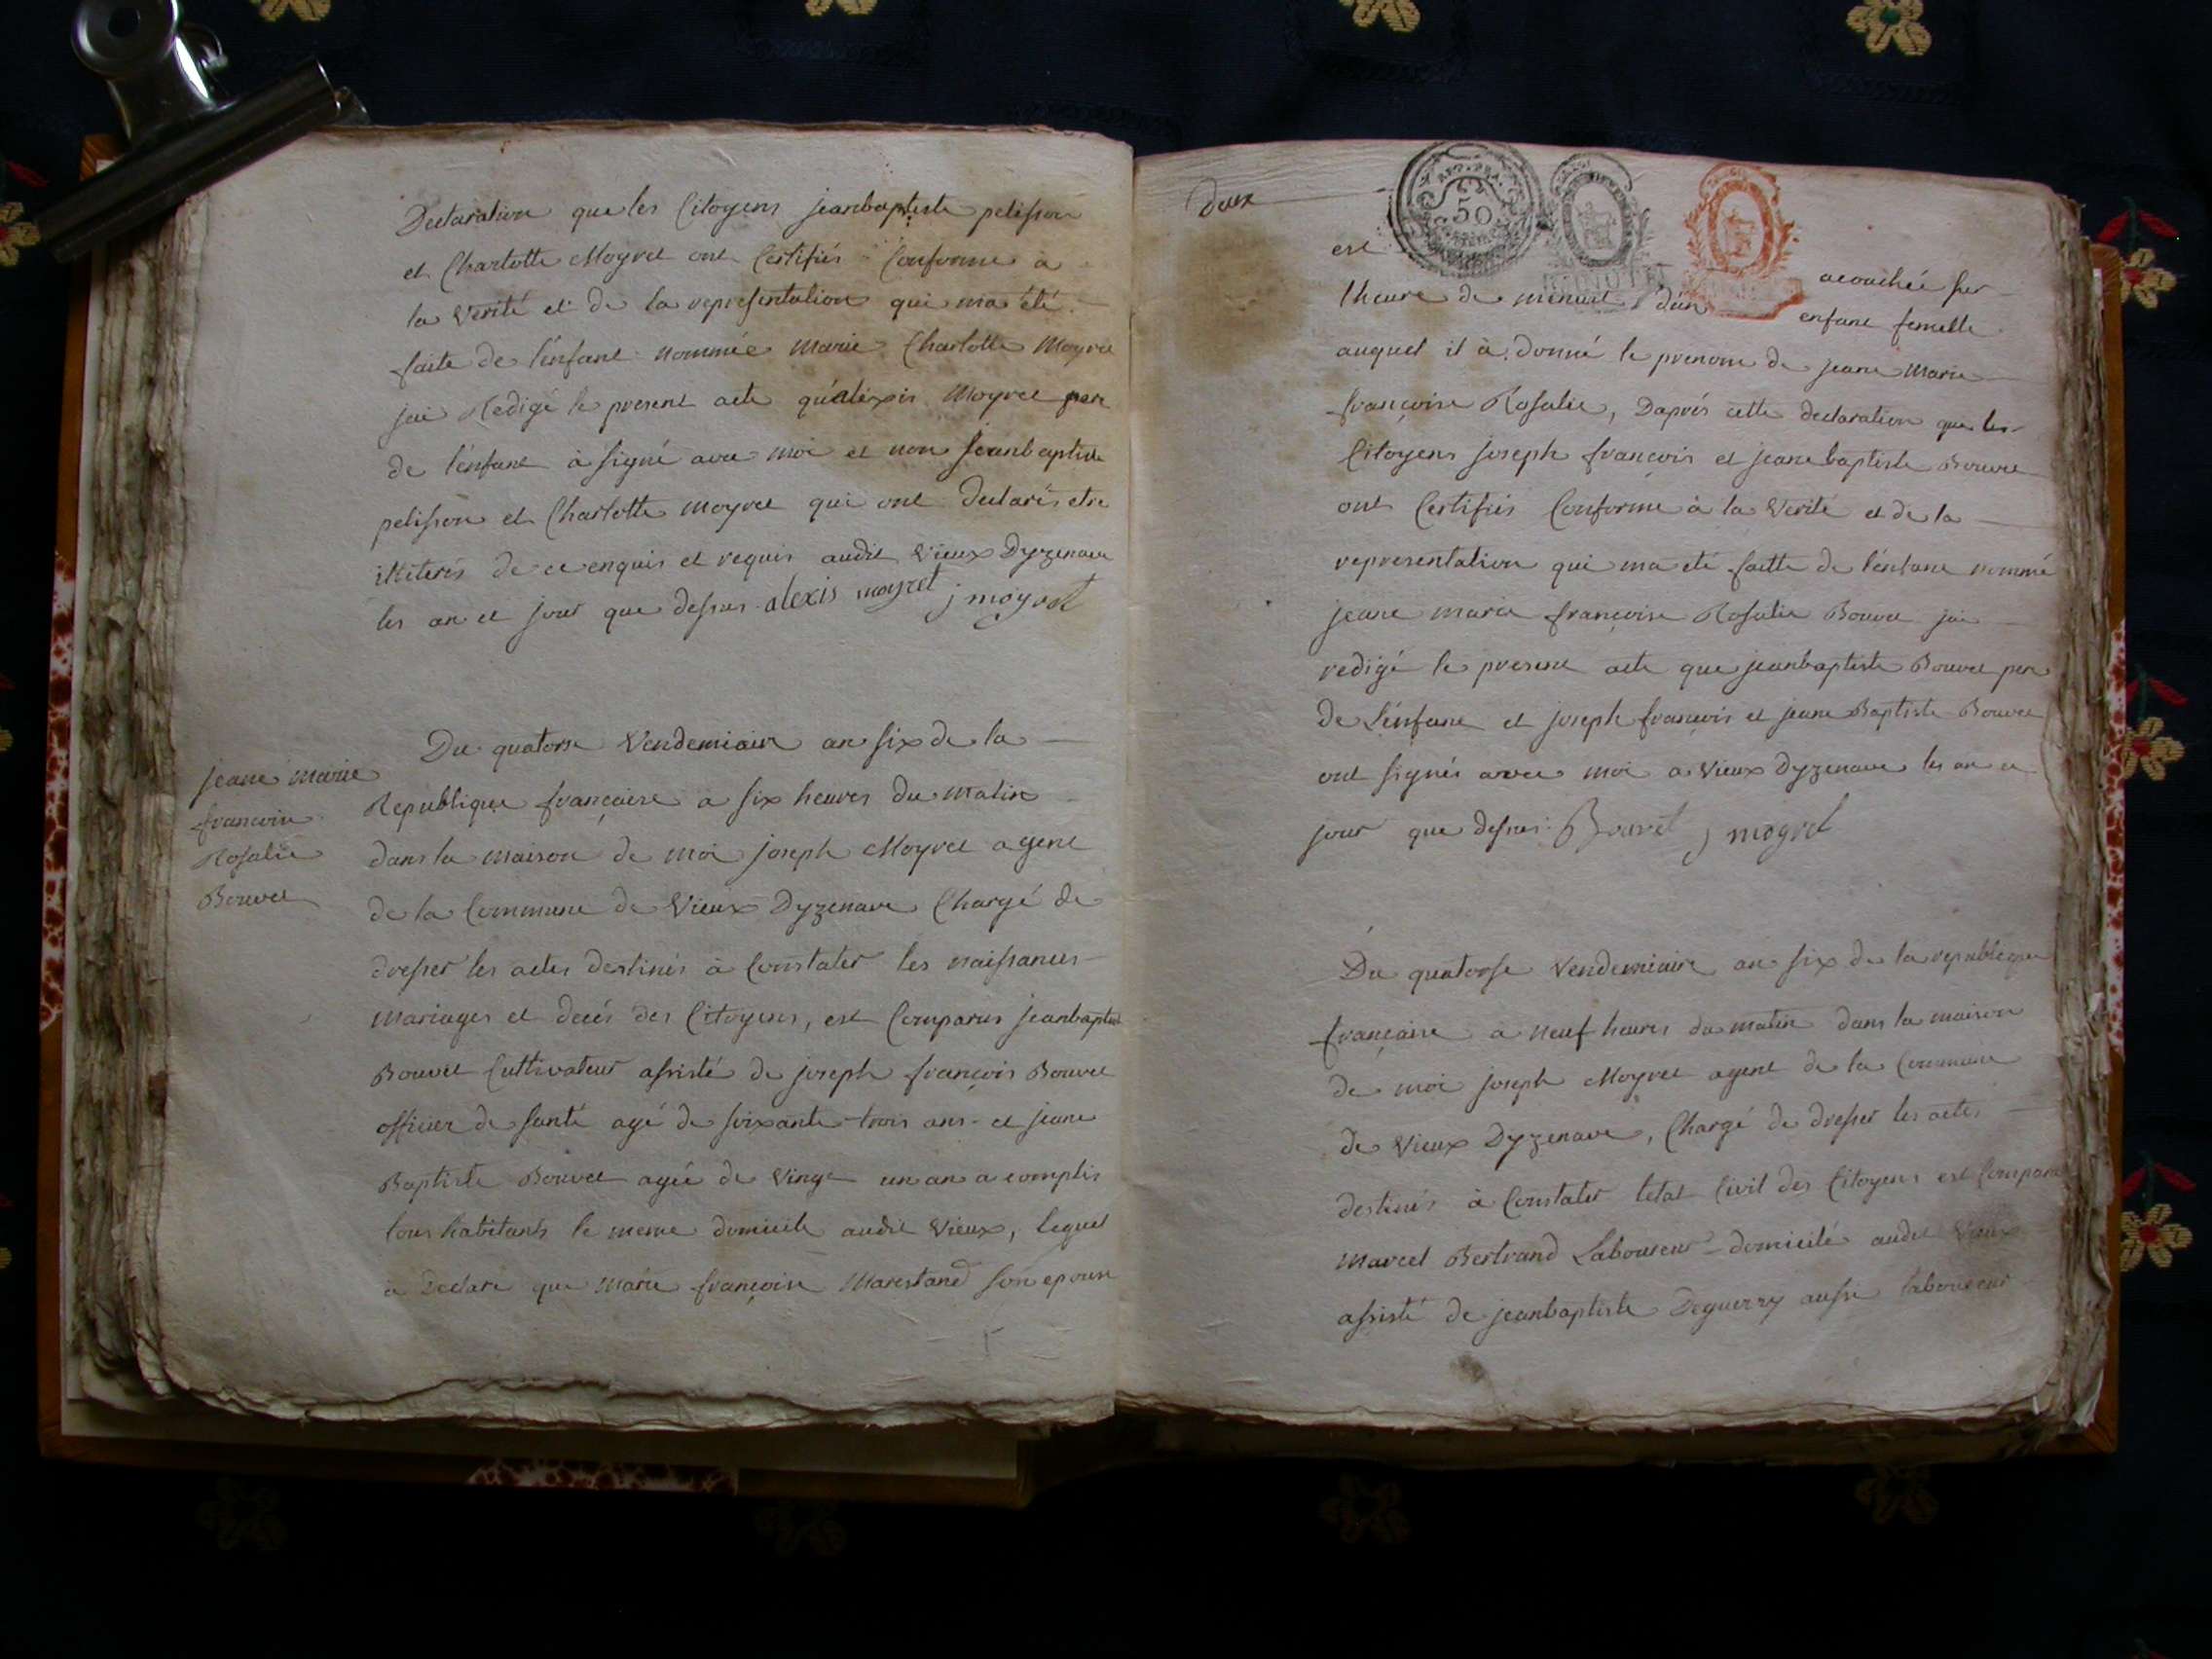 Declaration que les Citoyens jeanbaptiste pelisson
et Charlotte Moyret ont Certifiés Conforme à
la Verité et de la representation qui ma été
faite de l'enfant nommée Marie Charlotte Moyret
jai Redigé le present acte qu'alexis Moyret pere
de l'enfant à signé avec moi et non jeanbaptiste
pelisson et Charlotte moyret qui ont declarés etre
illiterés de ce enquis et requis audit Vieux Dyzenave
les an et jour que dessus alexis moyret j moyret
jeane marie
francoise
Rosalie
Bouvet
Du quatorse Vendemiaire an six de la
Republique françaire a six heures du matin
dans la maison de moi joseph Moyret agent
de la Commune de Vieux Dyzenave Chargé de
dresser les actes destinés à Constater les naissances
mariages et decés des Citoyens, est Comparus jeanbaptiste
Bouvet Cultivateur assisté de joseph françois Bouvet
officier de santé agé de soixante-trois ans et jeane
Baptiste Bouvet agée de Vingt un an acomplis
tous habitants le meme domicile audit Vieux, lequel
a Declaré que Marie françoise Marestand son epouse
deux
50
est acouchée sur
l'heure de minuit d'un enfant femelle
auquel il à donné le prenom de jeane Marie
françoise Rosalie, Daprés cette declaration que les
Citoyens joseph francois et jeane baptiste Bouvet
ont Certifiés Conforme à la Verité et de la
representation qui ma eté faitte de l'enfant nommé
jeane marie françoise Rosalie Bouvet jai
redigé le present acte que jeanbaptiste Bouvet pere
de L'enfant et joseph françois et jeane Baptiste Bouvet
ont signés avec moi a Vieux Dyzenave les an et
jour que dessus Bouvet j moyret
Du quatorse Vendemiaire an six de la republique
françaire a neuf heures du matin dans la maison
de moi joseph Moyret agent de la Commune
de Vieux Dyzenave, Chargé de dresser les actes
destinés à Constater letat Civil des Citoyens est Comparu
Marcel Bertrand Laboureur domicilé audit Vieux
assisté de jeanbaptiste Deguerry aussi laboureur